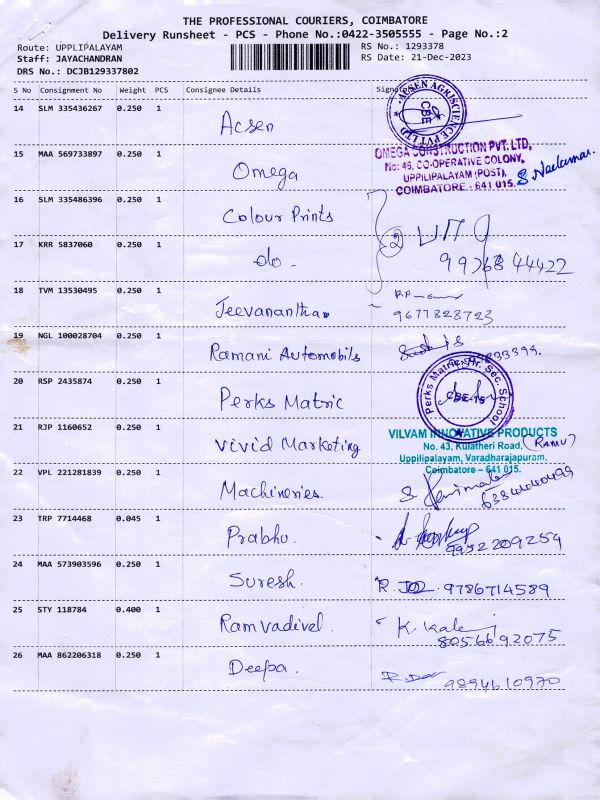 THE PROFESSIONAL COURIERS, COIMBATORE
Delivery Runsheet - PCS - Phone No.:0422-3505555 - Page No.:2
Route: UPPLIPALAYAM RS No.: 1293378
Staff: JAYACHANDRAN RS Date: 21-Dec-2023
DRS No.: DCJB129337802
S No Consignment No Weight PCS Consignee Details
14 SLM 335436267 0.250 1 Acsen
ACSEN AGRISCIENCE PVT LTD
CBE
15 MAA 569733897 0.250 1 Omega
OMEGA CONSTRUCTION PVT. LTD,
No: 46, CO-OPERATIVE COLONY,
UPPILIPALAYAM (POST),
COIMBATORE - 641 015.
16 SLM 335486396 0.250 1 Colour Prints
17 KRR 5837060 0.250 1 do. 2
18 TVM 13530495 0.250 1 Jeevanantham 9677828723
19 NGL 100028704 0.250 1 Ramani Automobils
20 RSP 2435874 0.250 1 Perks Matric
Perks Matric. Hr. Sec. School
CBE-15
21 RJP 1160652 0.250 1 Vivid Marketing
VILVAM INNOVATIVE PRODUCTS
No. 43, Kulatheri Road, (RAMU)
Uppilipalayam, Varadharajapuram,
Coimbatore – 641 015.
22 VPL 221281839 0.250 1 Machineries.
23 TRP 7714468 0.045 1 Prabhu. 9952209259
24 MAA 573903596 0.250 1 Suresh. 9786714589
25 STY 118784 0.400 1 Ramvadivel. 8056692075
26 MAA 862206318 0.250 1 Deepa. 9894610970